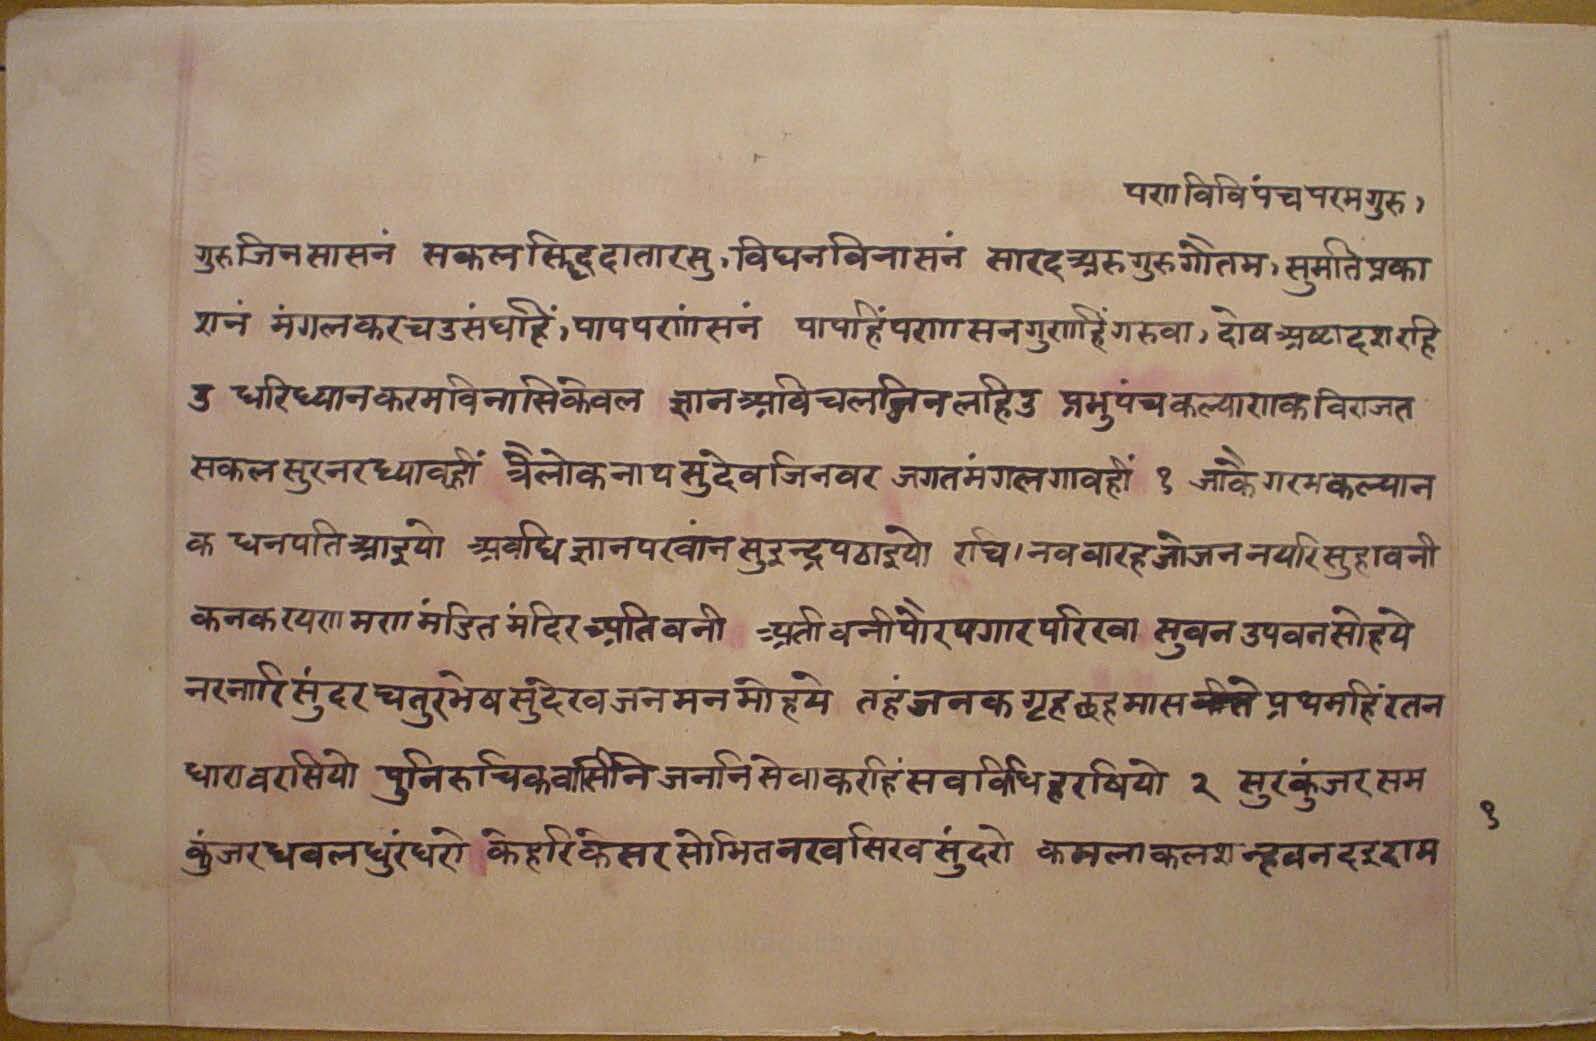 पणविवि पंच परम गुरु,
गुरुजिनसासनं सकलसिद्धदातारसु, विघनविनासनं सारदअरुगुरुगौतम, सुमतिप्रका
शनं मंगलकरचउसंघहिं, पापपणांसनं पापहिंपणासनगुणहिंगरुवा, दोषअष्टादशरहि
उ धरिध्यानकरमविनासिकेवल ज्ञानअविचलजिनलहिउ प्रभुपंचकल्याणकविराजत
सकलसुरनरध्यावहीं त्रैलोकनाथसुदेवजिनवर जगतमंगलगावहीं १ जाकैगरभकल्यान
क धनपतिआइयो अवधिज्ञानपरवांनसुइन्द्रपठाइयो रचि।नवबारहजोजननयरिसुहावनी
कनकरयणमणमंडितमंदिरअतिवनी अतीवनीपौरपगारपरिखा सुवनउपवनसोहये
नरनारिसुंदरचतुरभेषसुदेखजनमनमोहये तहंजनकगृहछहमास प्रथमहिंरतन
धारावरसियो पुनिरुचिकवासिनिजननिसेवाकरहिंसवविधिहरषियो २ सुरकुंजरसम
कुंजरधवलधुरंधरो केहरिकेसरसोभितनखसिखसुंदरो कमलाकलशन्हवनदइदाम
१